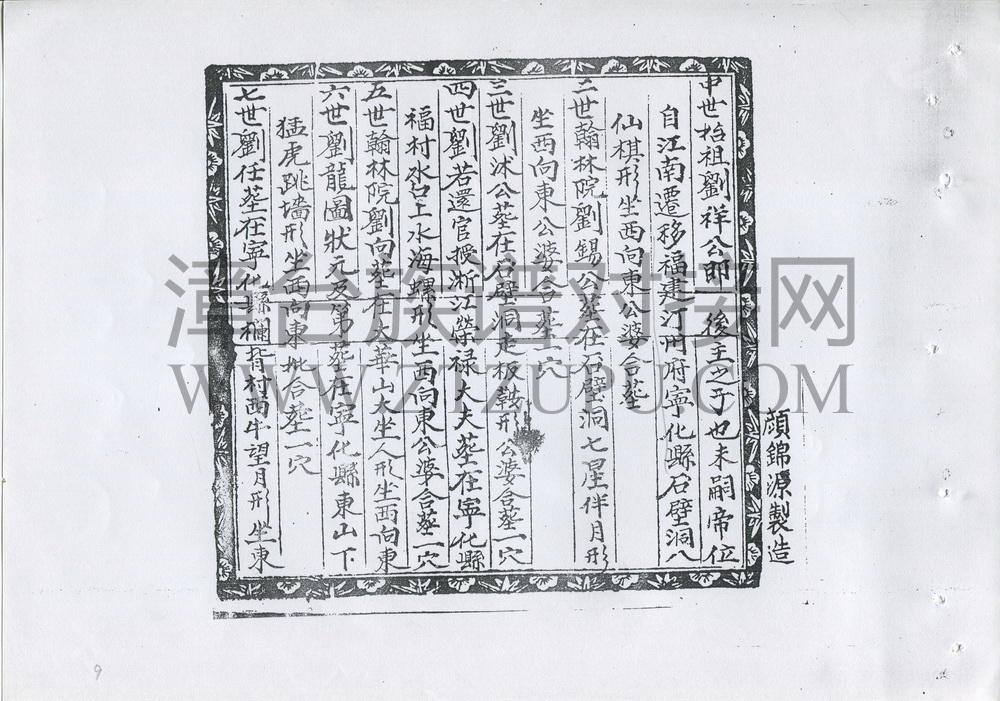 顏錦源製造
中世始祖劉祥公即後主之子也未嗣帝位
自江南遷移福建汀州府寧化縣石壁洞八
仙棋形坐西向東公婆合塟
二世翰林院劉錫公塟在石壁洞七星伴月形
坐西向東公婆合塟一穴
三世劉沭公塟在石壁洞走板鞍形公婆合塟一穴
四世劉若還官授浙江榮禄大夫塟在寧化縣
福村水口上水海螺形坐西向東公婆合塟一穴
五世翰林院劉向塟在太華山大坐人形坐西向東
六世劉龍圖狀元及第塟在寧化縣東山下
猛虎跳墻形坐西向東妣合塟一穴
七世劉任塟在寧化縣欄背村西牛望月形坐東
漳台族谱对接网
WWW.ZTZUPU.COM
9